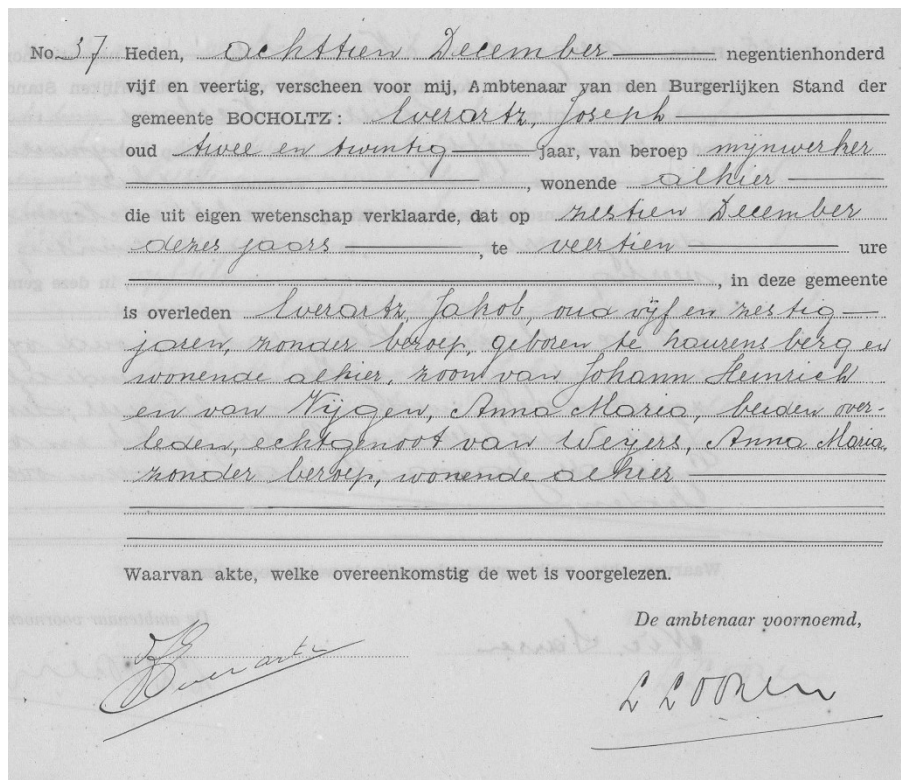 No. 37 Heden, Achttien December negentienhonderd
vijf en veertig, verscheen voor mij, Ambtenaar van den Burgerlijken Stand der
gemeente BOCHOLTZ: Everartz, Joseph
oud twee en twintig jaar, van beroep mynwerker
, wonende alhier
die uit eigen wetenschap verklaarde, dat op zestien December
dezes jaars , te veertien ure
, in deze gemeente
is overleden Everartz, Jakob, oud vijf en zestig
jaren, zonder beroep, geboren te Laurensberg en
wonende alhier, zoon van Johann Heinrich
en van Vijgen, Anna Maria, beiden over-
leden, echtgenoot van Weijers, Anna Maria,
zonder beroep, wonende alhier
Waarvan akte, welke overeenkomstig de wet is voorgelezen.
De ambtenaar voornoemd,
Everartz